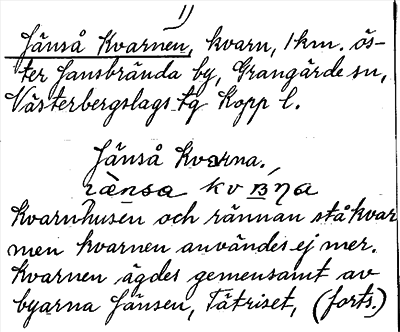 1)
Jänså Kvarnen, kvarn, 1 km. ös-
ter Jansbrända by, Grangärde sn,
Västerbergslags tg Kopp l.
Jänså Kvarna.
rä̀nsa kv ɐŋa
Kvarnhusen och rännan stå kvar
men kvarnen användes ej mer.
Kvarnen ägdes gemensamt av
byarna Jänsen, Tätriset, (forts.)